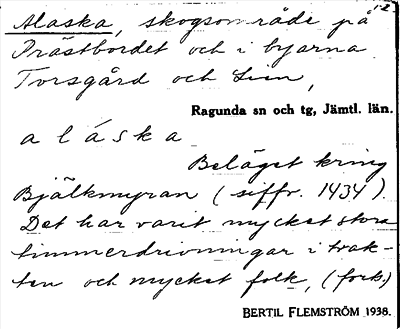 12
Alaska, skogsområde på
Prästbordet och i byarna
Torsgård och Lien,
Ragunda sn och tg, Jämtl. län.
a l á s k a
Beläget kring
Bjälkmyran (siffr. 1434)
Det har varit mycket stora
timmerdrivningar i trak-
ten och mycket folk, (forts.)
BERTIL FLEMSTRÖM 1938.